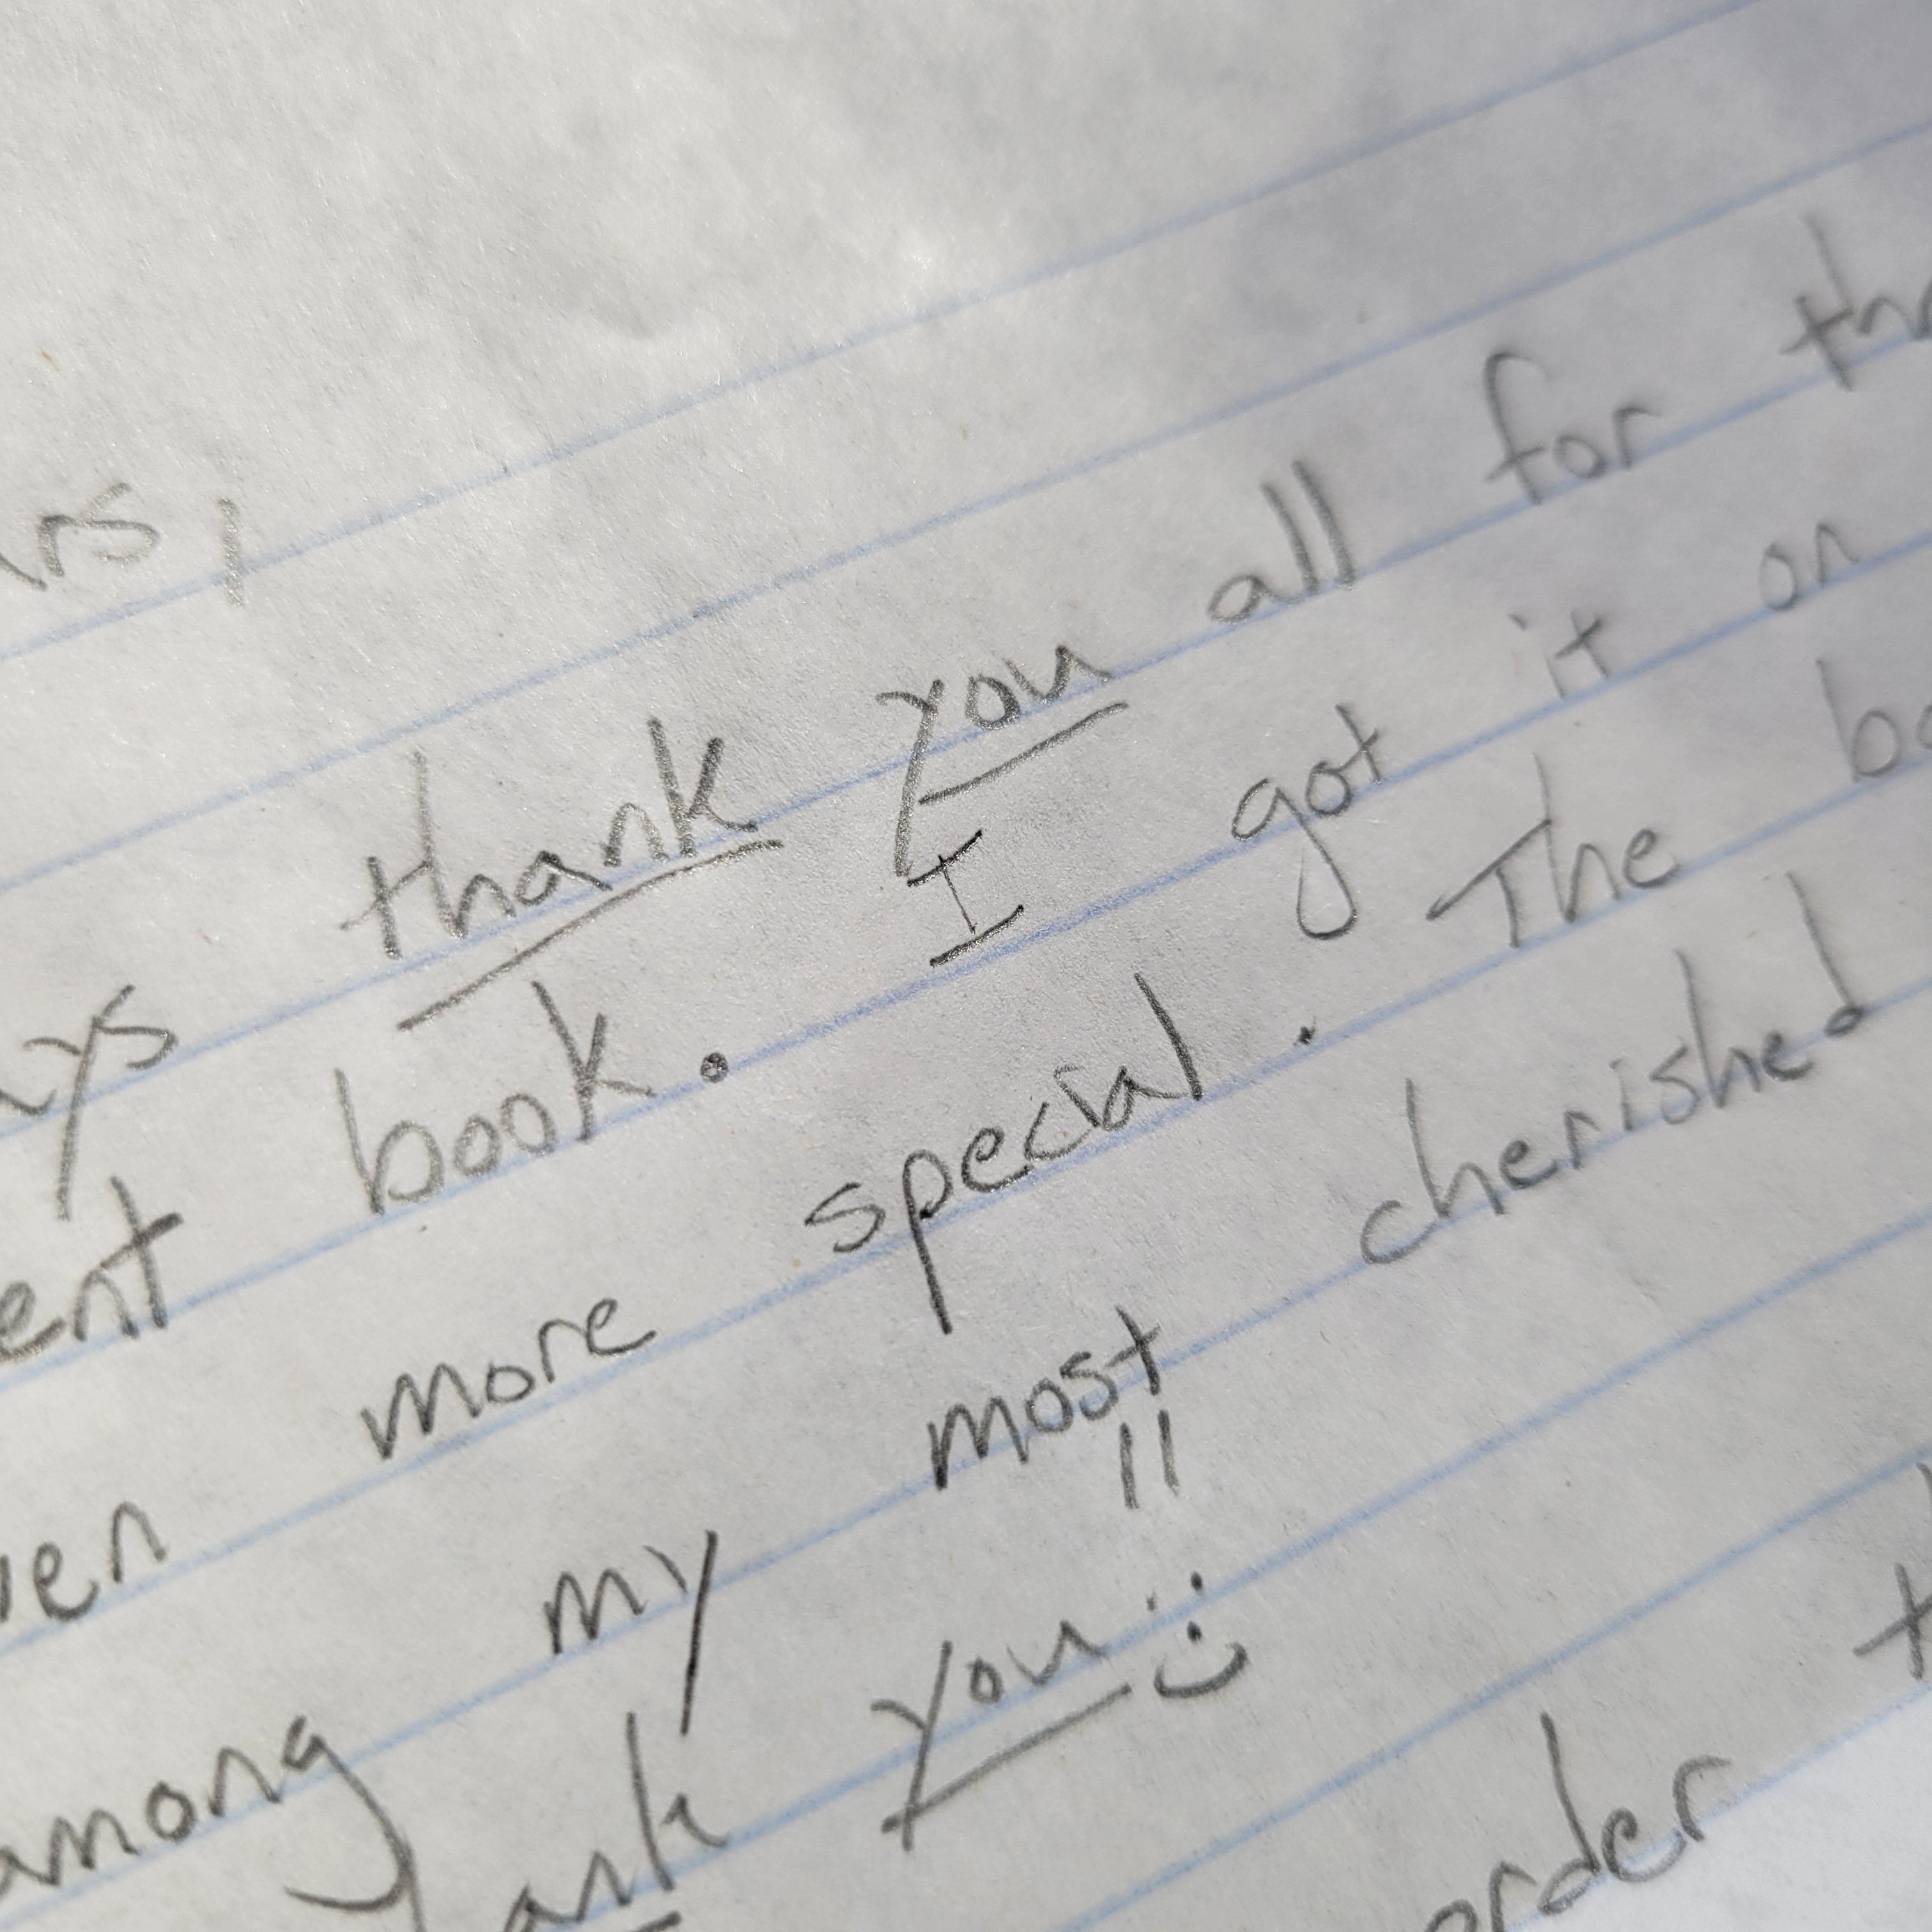 rs,
ys thank you all for th
ent book. I got it on
ven more special. The bo
among my most cherished
ank you :)
order t